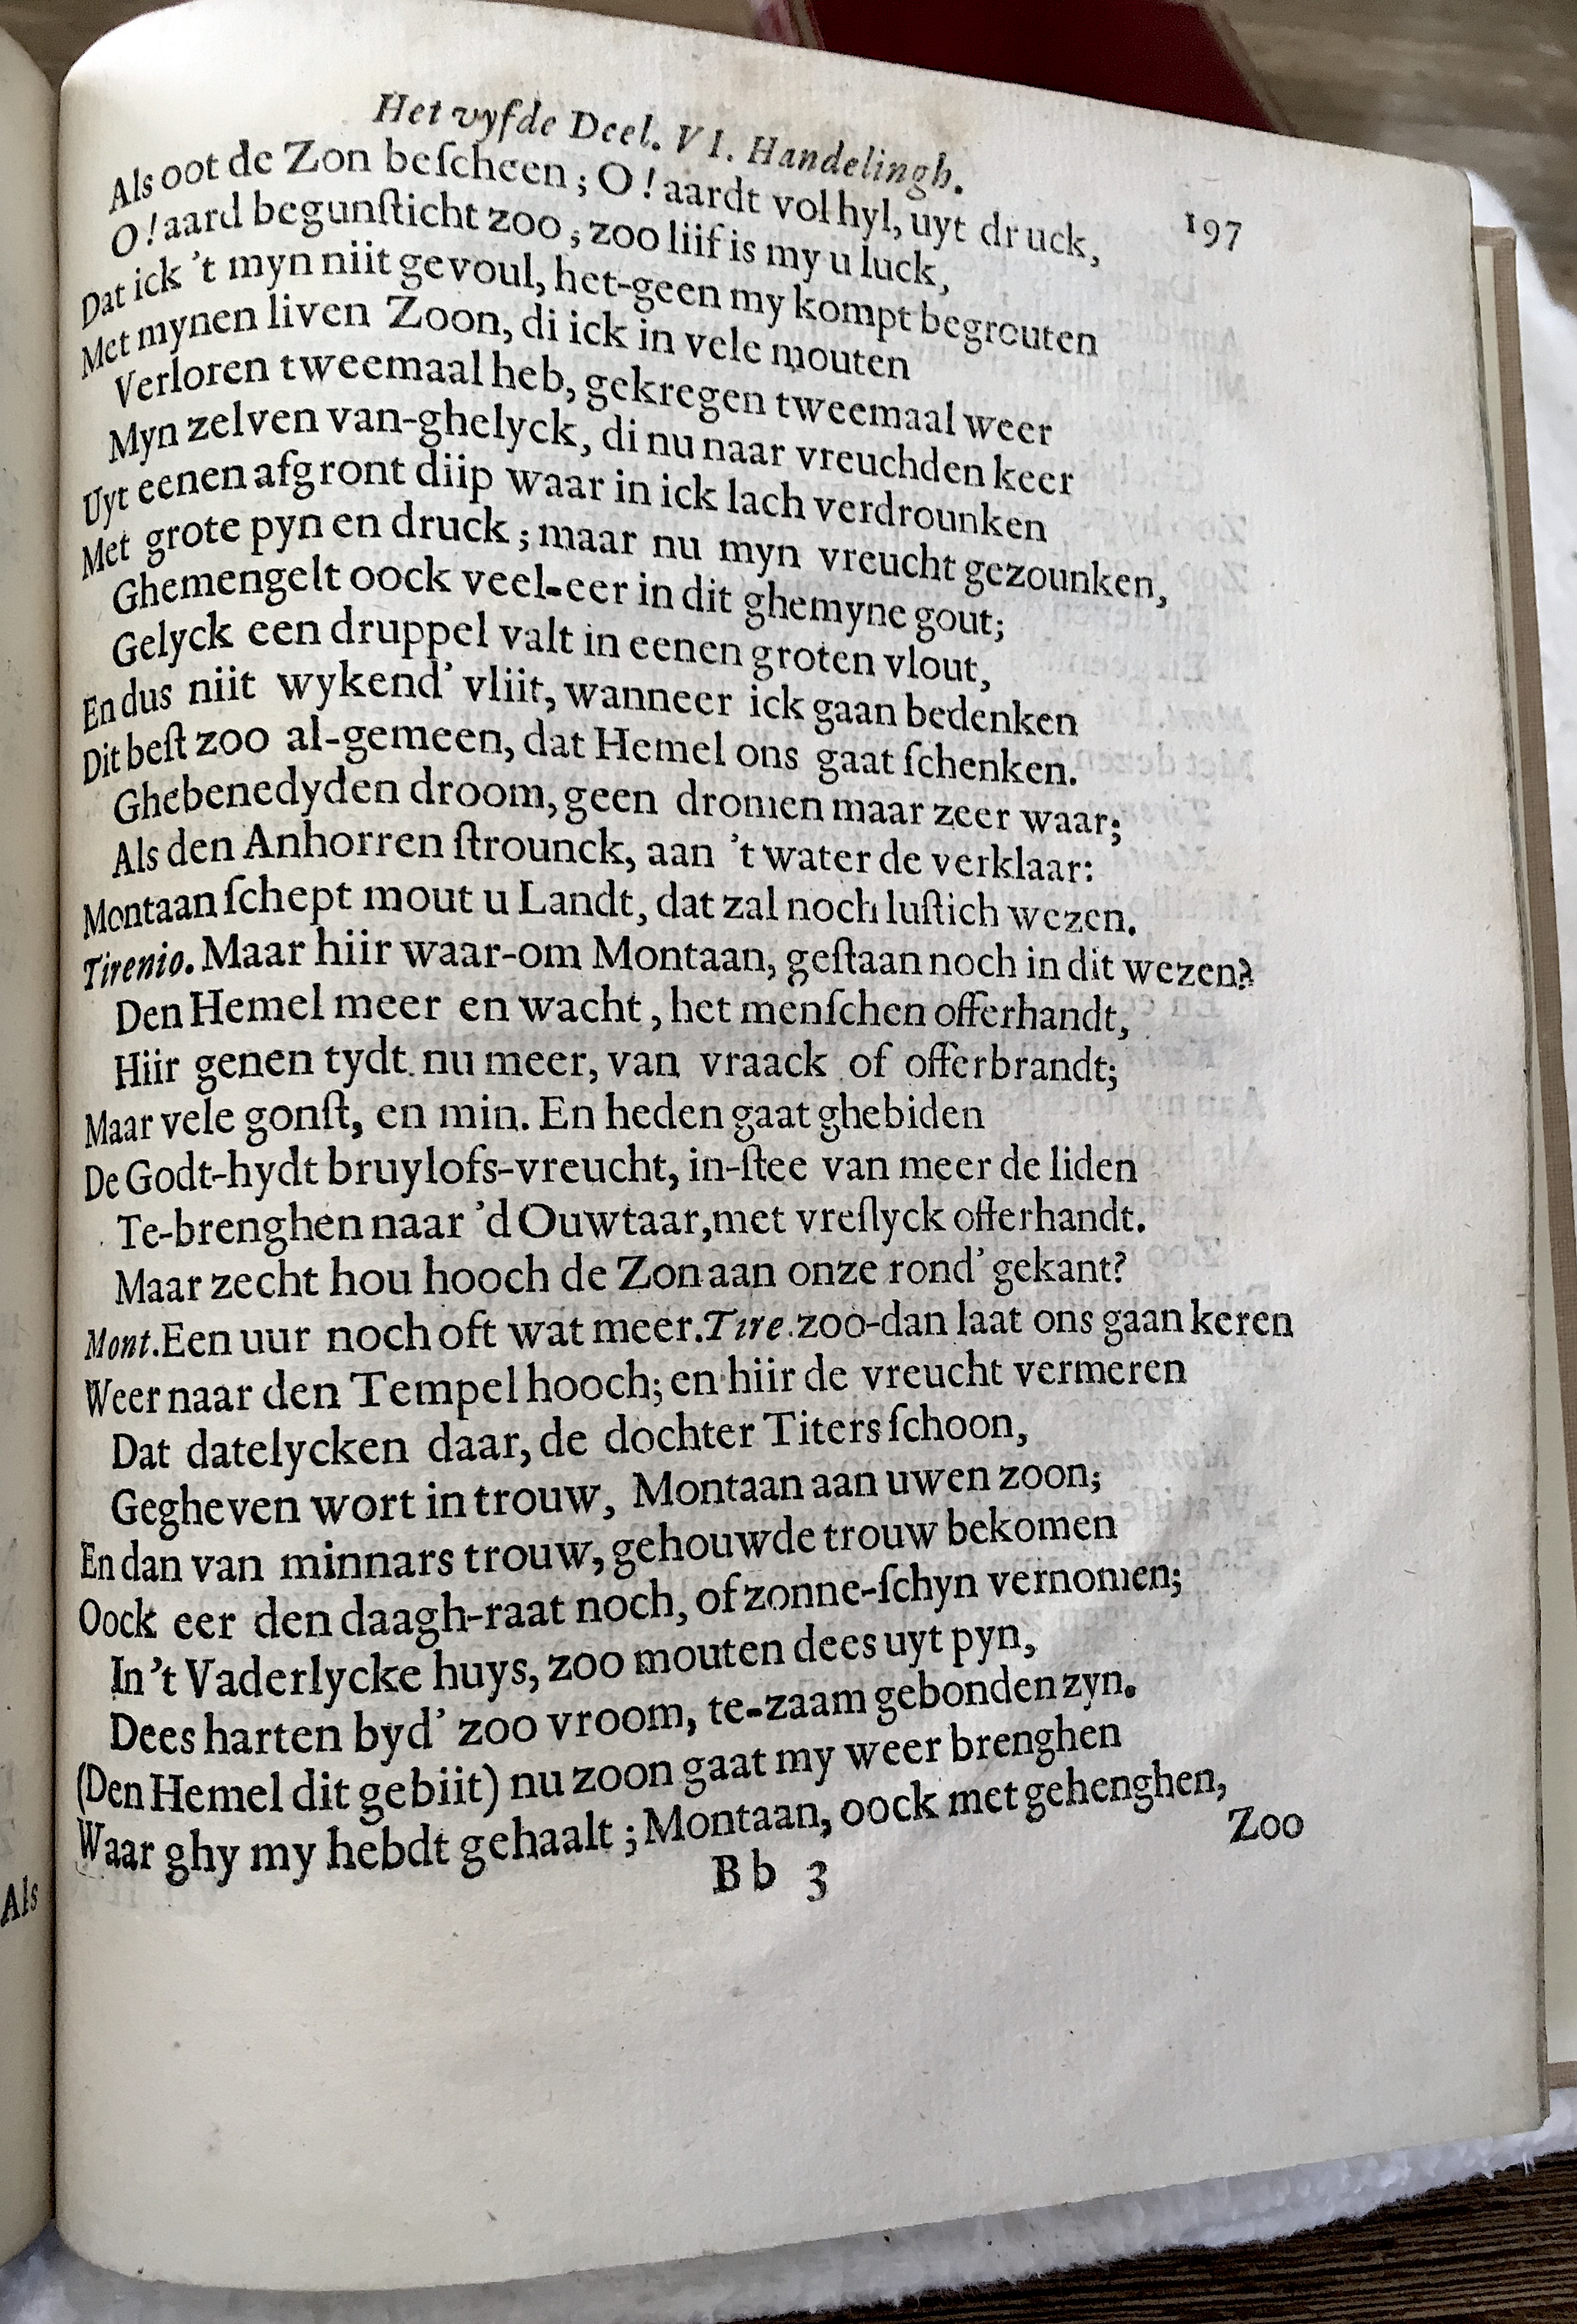 Het vyfde Deel. VI. Handelingh. 197
Als oot de Zon beſcheen; O! aardt vol hyl, uyt druck,
O! aard begunſticht zoo; zoo liif is my u luck,
Dat ick 't myn niit gevoul, het-geen my kompt begrouten
Met mynen liven Zoon, di ick in vele mouten
Verloren tweemaal heb, gekregen tweemaal weer
Myn zelven van-ghelyck, di nu naar vreuchden keer
Uyt eenen afgront diip waar in ick lach verdrounken
Met grote pyn en druck; maar nu myn vreucht gezounken,
Ghemengelt oock veel-eer in dit ghemyne gout;
Gelyck een druppel valt in eenen groten vlout,
En dus niit wykend' vliit, wanneer ick gaan bedenken
Dit beſt zoo al-gemeen, dat Hemel ons gaat ſchenken.
Ghebenedyden droom, geen dromen maar zeer waar;
Als den Anhorren ſtrounck, aan 't water de verklaar:
Montaan ſchept mout u Landt, dat zal noch luſtich wezen.
Tirenio. Maar hiir waar-om Montaan, geſtaan noch in dit wezen?
Den Hemel meer en wacht, het menſchen offerhandt,
Hiir genen tydt nu meer, van vraack of offerbrandt;
Maar vele gonſt, en min. En heden gaat ghebiden
De Godt-hydt bruylofs-vreucht, in-ſtee van meer de liden
Te-brenghen naar 'd Ouwtaar, met vreſlyck offerhandt.
Maar zecht hou hooch de Zon aan onze rond' gekant?
Mont. Een uur noch oft wat meer. Tire. zoo-dan laat ons gaan keren
Weer naar den Tempel hooch; en hiir de vreucht vermeren
Dat datelycken daar, de dochter Titers ſchoon,
Gegheven wort in trouw, Montaan aan uwen zoon;
En dan van minnars trouw, gehouwde trouw bekomen
Oock eer den daagh-raat noch, of zonne-ſchyn vernomen;
In 't Vaderlycke huys, zoo mouten dees uyt pyn,
Dees harten byd' zoo vroom, te-zaam gebonden zyn.
(Den Hemel dit gebiit) nu zoon gaat my weer brenghen
Waar ghy my hebdt gehaalt; Montaan, oock met gehenghen,
Bb 3
Zoo
Als